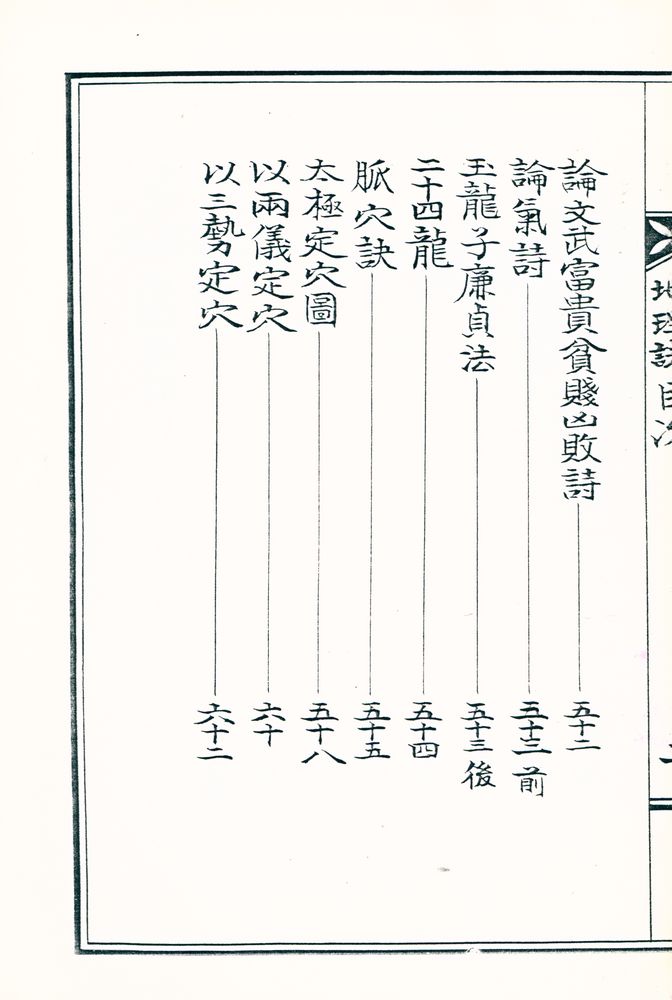 論文武富貴貧賤凶敗詩 五十二
論氣詩 五十三前
玉龍子廉貞法 五十三後
二十四龍 五十四
脈穴訣 五十五
太極定穴圖 五十八
以兩儀定穴 六十
以三勢定穴 六十二
地理訣目次